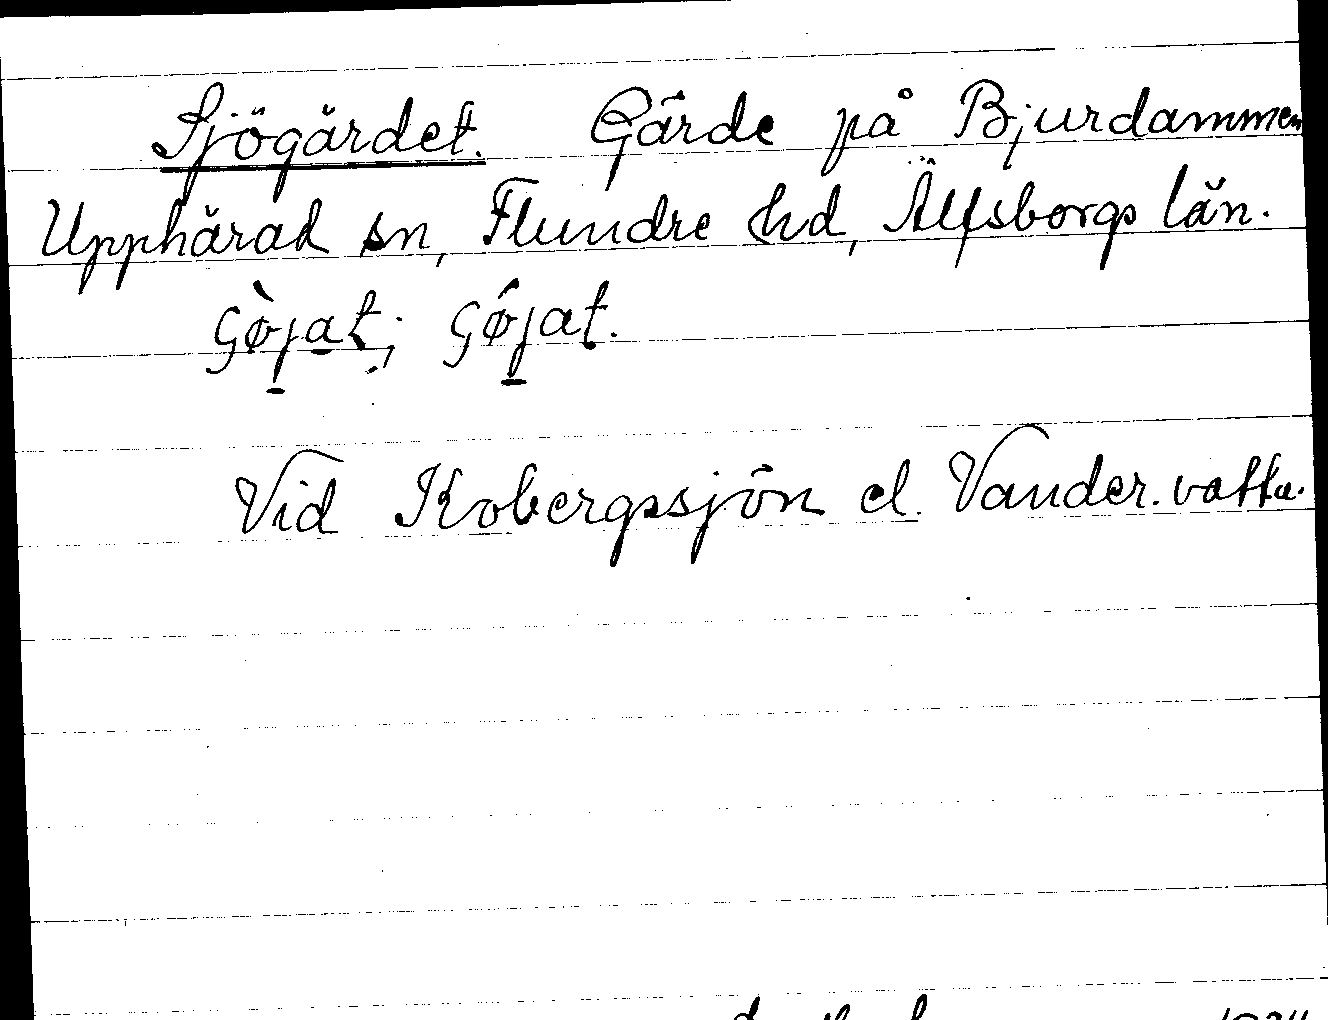 Sjögärdet. Gärde på Bjurdammen
Upphärad sn, Flundre hd, Älfsborgs län.
Vid Kobergssjön el. Vander.vattn.